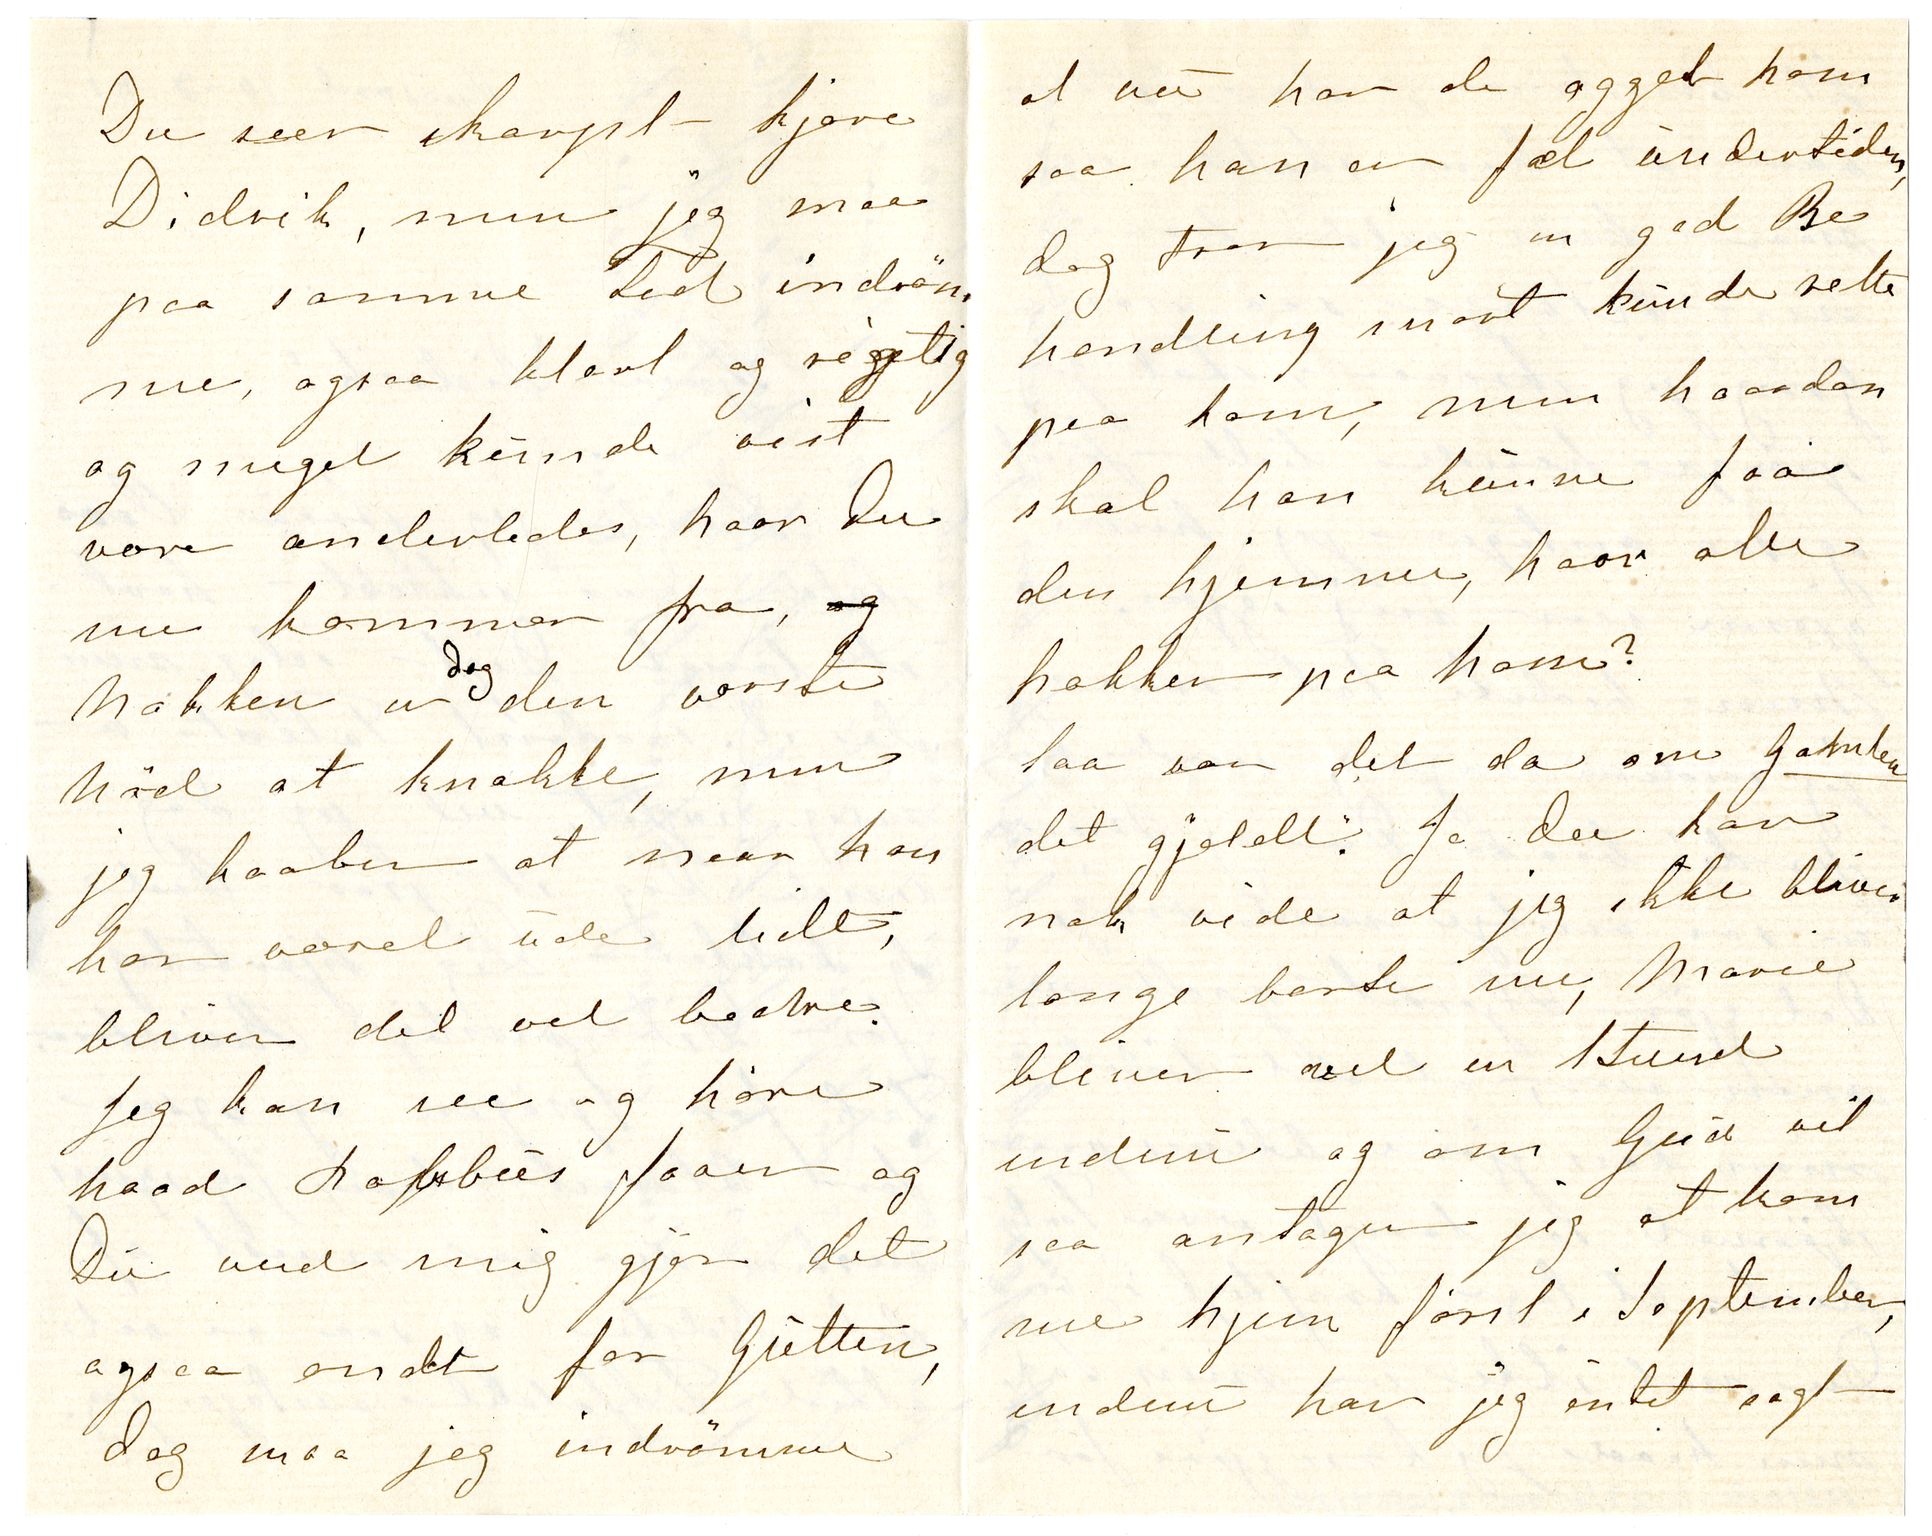 Du seer skarpt kjære
Didrik, men jeg maa
paa samme tid indröm
me, ogsaa klart og rigtig
og meget kunde vist
være anderledes, hvor Du
nu kommer fra, og
Nakken er dog den værste
Nöd at knække, men
jeg haaber at naar han
har været ude lidt,
bliver det vel bedre.
Jeg kan see og höre
hvad faaer og
Du med mig gjør det
ogsaa ondt for Gutten,
dog maa jeg indrömme
at nu har de egget ham
saa han er fæl undertiden,
dog tror jeg en god Be
handling snart kunde rette
paa ham, men hvordan
skal han kunne faa
den hjemme, hvor alle
hakker paa ham?
Saa var det da om Gamlen
det gjeldt. Ja Du kan
nok vide at jeg ikke bliver
længe borte nu, Marie
bliver vel en Stund
endnu og om Gud vil
saa antager jeg at kom
me hjem först i September,
endnu har jeg intet sagt